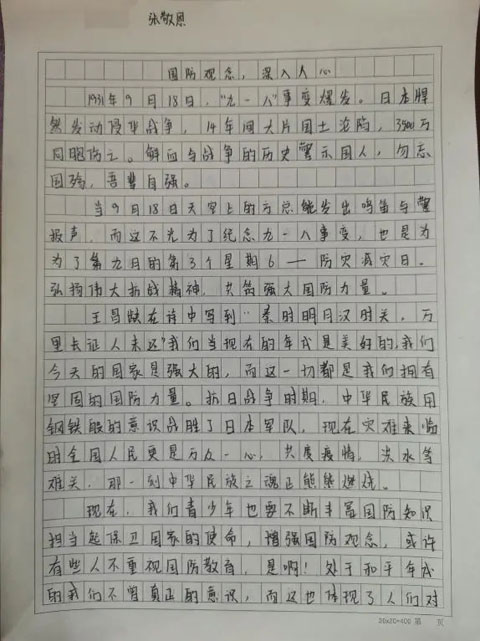 张敬恩
国防观念，深入人心
1931年9月18日，"九一八"事变爆发。日本悍
然发动侵华战争，14年间大片国土沦陷，3500万
同胞伤亡。鲜血与战争的历史警示国人，勿忘
国殇，吾辈自强。
当9月18日天空上的方总能发出鸣笛与警
报声，而这不光为了纪念九一八事变，也是为
为了第九月的第3个星期6——防灾减灾日。
弘扬伟大抗战精神，共筑强大国防力量。
王昌龄在诗中写到"秦时明月汉时关，万
里长征人未还"我们当现在的年代是美好的，我们
今天的国家是强大的，而这一切都是我们拥有
坚固的国防力量。抗日战争时期，中华民族用
钢铁般的意识战胜了日本军队，现在灾难来临
时全国人民更是万众一心，共度疫情，洪水等
难关，那一刻中华民族之魂正熊熊燃烧。
现在，我们青少年也要不断丰富国防知识
担当起保卫国家的使命，增强国防观念，或许
有些人不重视国防教育，是啊！处于和平年代
的我们不曾真正的意识，而这也体现了人们对
20×20=400 第 页